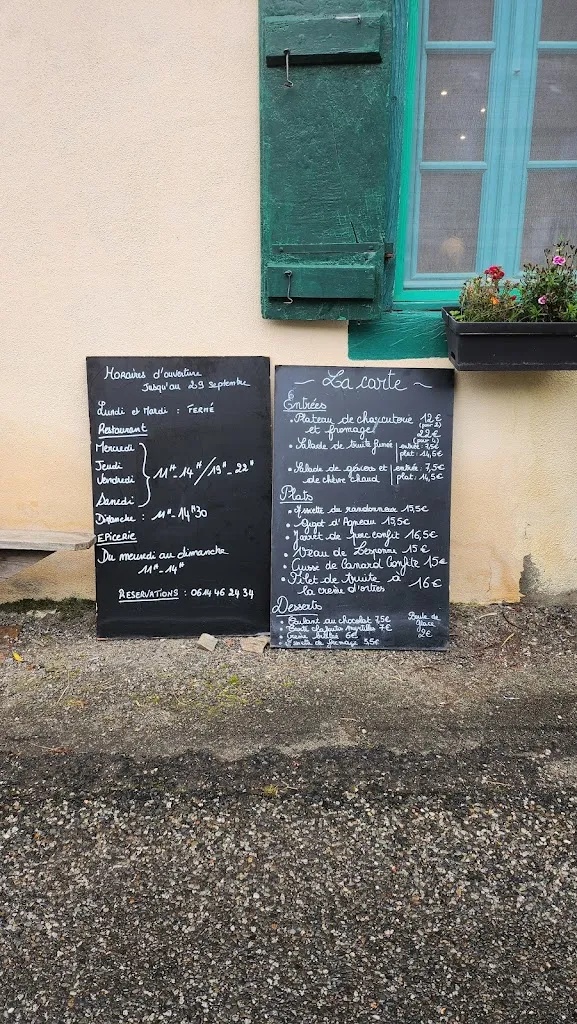 Horaires d'ouverture
Jusqu'au 29 septembre
Lundi et Mardi : FERMÉ
Restaurant
Mercredi
Jeudi
Vendredi
Samedi
11H-14H/19H-22H
Dimanche : 11H-14H30
EPICERIE
Du mercredi au dimanche
11H-14H
RESERVATIONS : 06 14 46 24 34
~ La carte ~
Entrées
• Plateau de charcuterie 12€
et fromage (pour 2)
22€
(pour 4)
• Salade de truite fumée entrée: 7,5€
plat: 14,5€
• Salade de gésiers et entrée: 7,5€
de chèvre chaud plat: 14,5€
Plats
• Assiette du randonneur 15,5€
• Gigot d'Agneau 15,5€
• Jarret de porc confit 16,5€
• Veau de 15€
• Cuisse de Canard Confite 15€
• Filet de truite à 16€
la crème d'orties
Desserts
• Coulant au chocolat 7,5€
• Tarte myrtilles 7€
• Crème brûlée 6€
• Assiette de fromage 3,5€
Boule de
glace
2€